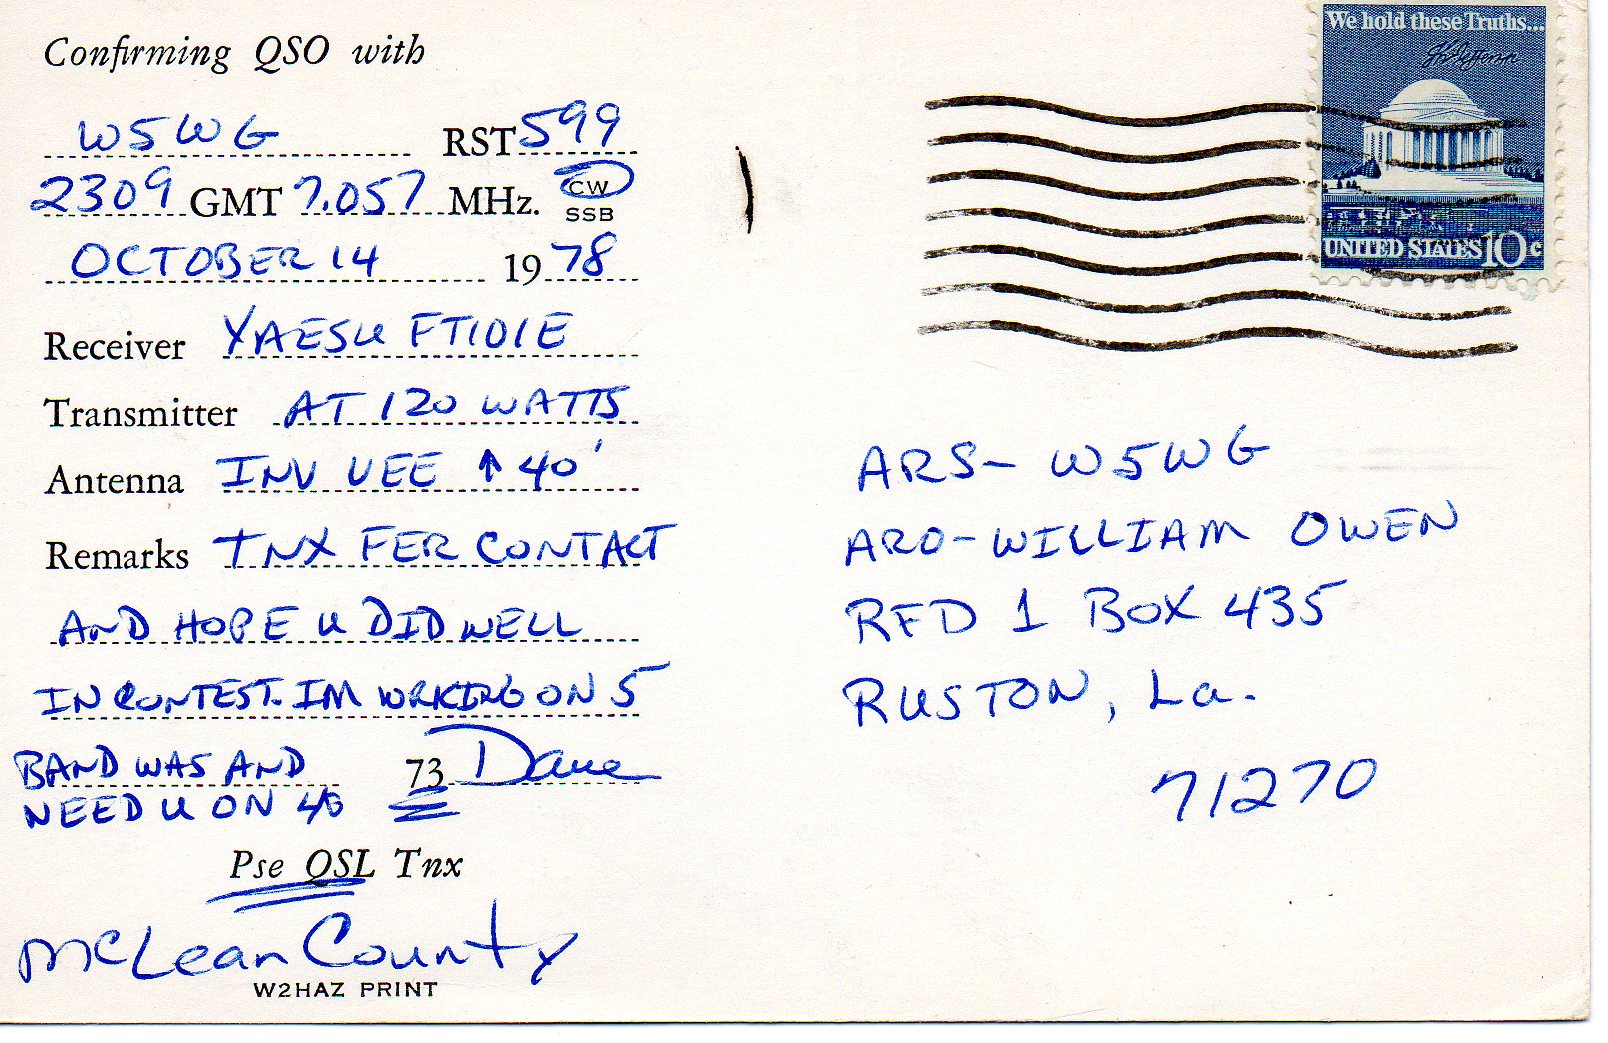 Confirming QSO with
W5WG RST 599
2309 GMT 7.057 MHz. CW
SSB
OCTOBER 14 1978
Receiver YAESU FT101E
Transmitter AT 120 WATTS
Antenna INV VEE ↑ 40'
Remarks TNX FER CONTACT
AND HOPE U DID WELL
IN CONTEST. IM WRKING ON 5
BAND WAS AND 73 Dave
NEED U ON 40
Pse QSL Tnx
McLean County
W2HAZ PRINT
We hold these Truths...
UNITED STATES 10c
ARS- W5WG
ARO- WILLIAM OWEN
RFD 1 BOX 435
RUSTON, La.
71270